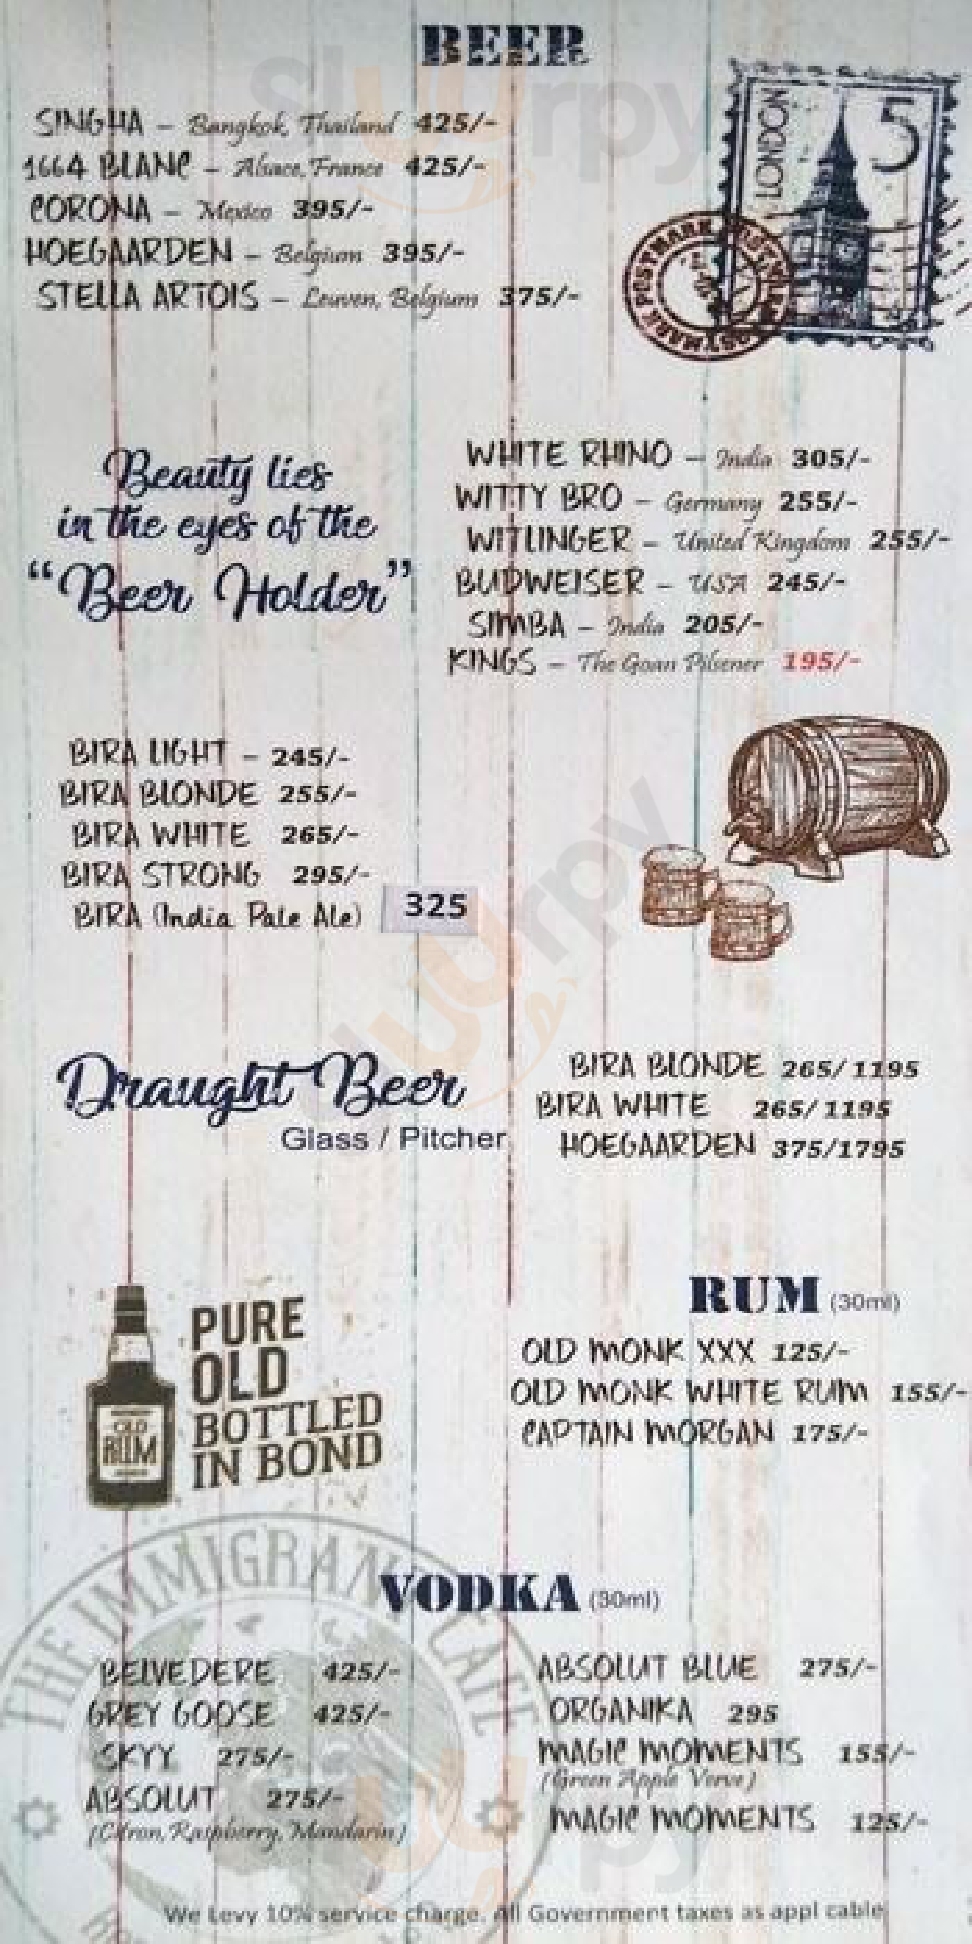 BEER
SINGHA - Bangkok, Thailand 425/-
1664 BLANC - Alsace, France 425/-
CORONA - Mexico 395/-
HOEGAARDEN - Belgium 395/-
STELLA ARTOIS - Leuven, Belgium 375/-
LONDON
5
POSTMARK
Beauty lies
in the eyes of the
"Beer Holder"
WHITE RHINO - India 305/-
WITTY BRO - Germany 255/-
WITLINGER - United Kingdom 255/-
BUDWEISER - USA 245/-
SIMBA - India 205/-
KINGS - The Goan Pilsener 195/-
BIRA LIGHT - 245/-
BIRA BLONDE 255/-
BIRA WHITE 265/-
BIRA STRONG 295/-
BIRA (India Pale Ale) 325
Draught Beer
Glass / Pitcher
BIRA BLONDE 265/1195
BIRA WHITE 265/1195
HOEGAARDEN 375/1795
OLD
RUM
PURE
OLD
BOTTLED
IN BOND
RUM (30ml)
OLD MONK XXX 125/-
OLD MONK WHITE RUM 155/-
CAPTAIN MORGAN 175/-
THE IMMIGRANT CAFE
VODKA (30ml)
BELVEDERE 425/-
GREY GOOSE 425/-
SKYY 275/-
ABSOLUT 275/-
(Citron, Raspberry, Mandarin)
ABSOLUT BLUE 275/-
ORGANIKA 295
MAGIC MOMENTS 155/-
(Green Apple Verve)
MAGIC MOMENTS 125/-
We Levy 10% service charge. All Government taxes as appl cable
sluurpy
sluurpy
sluurpy